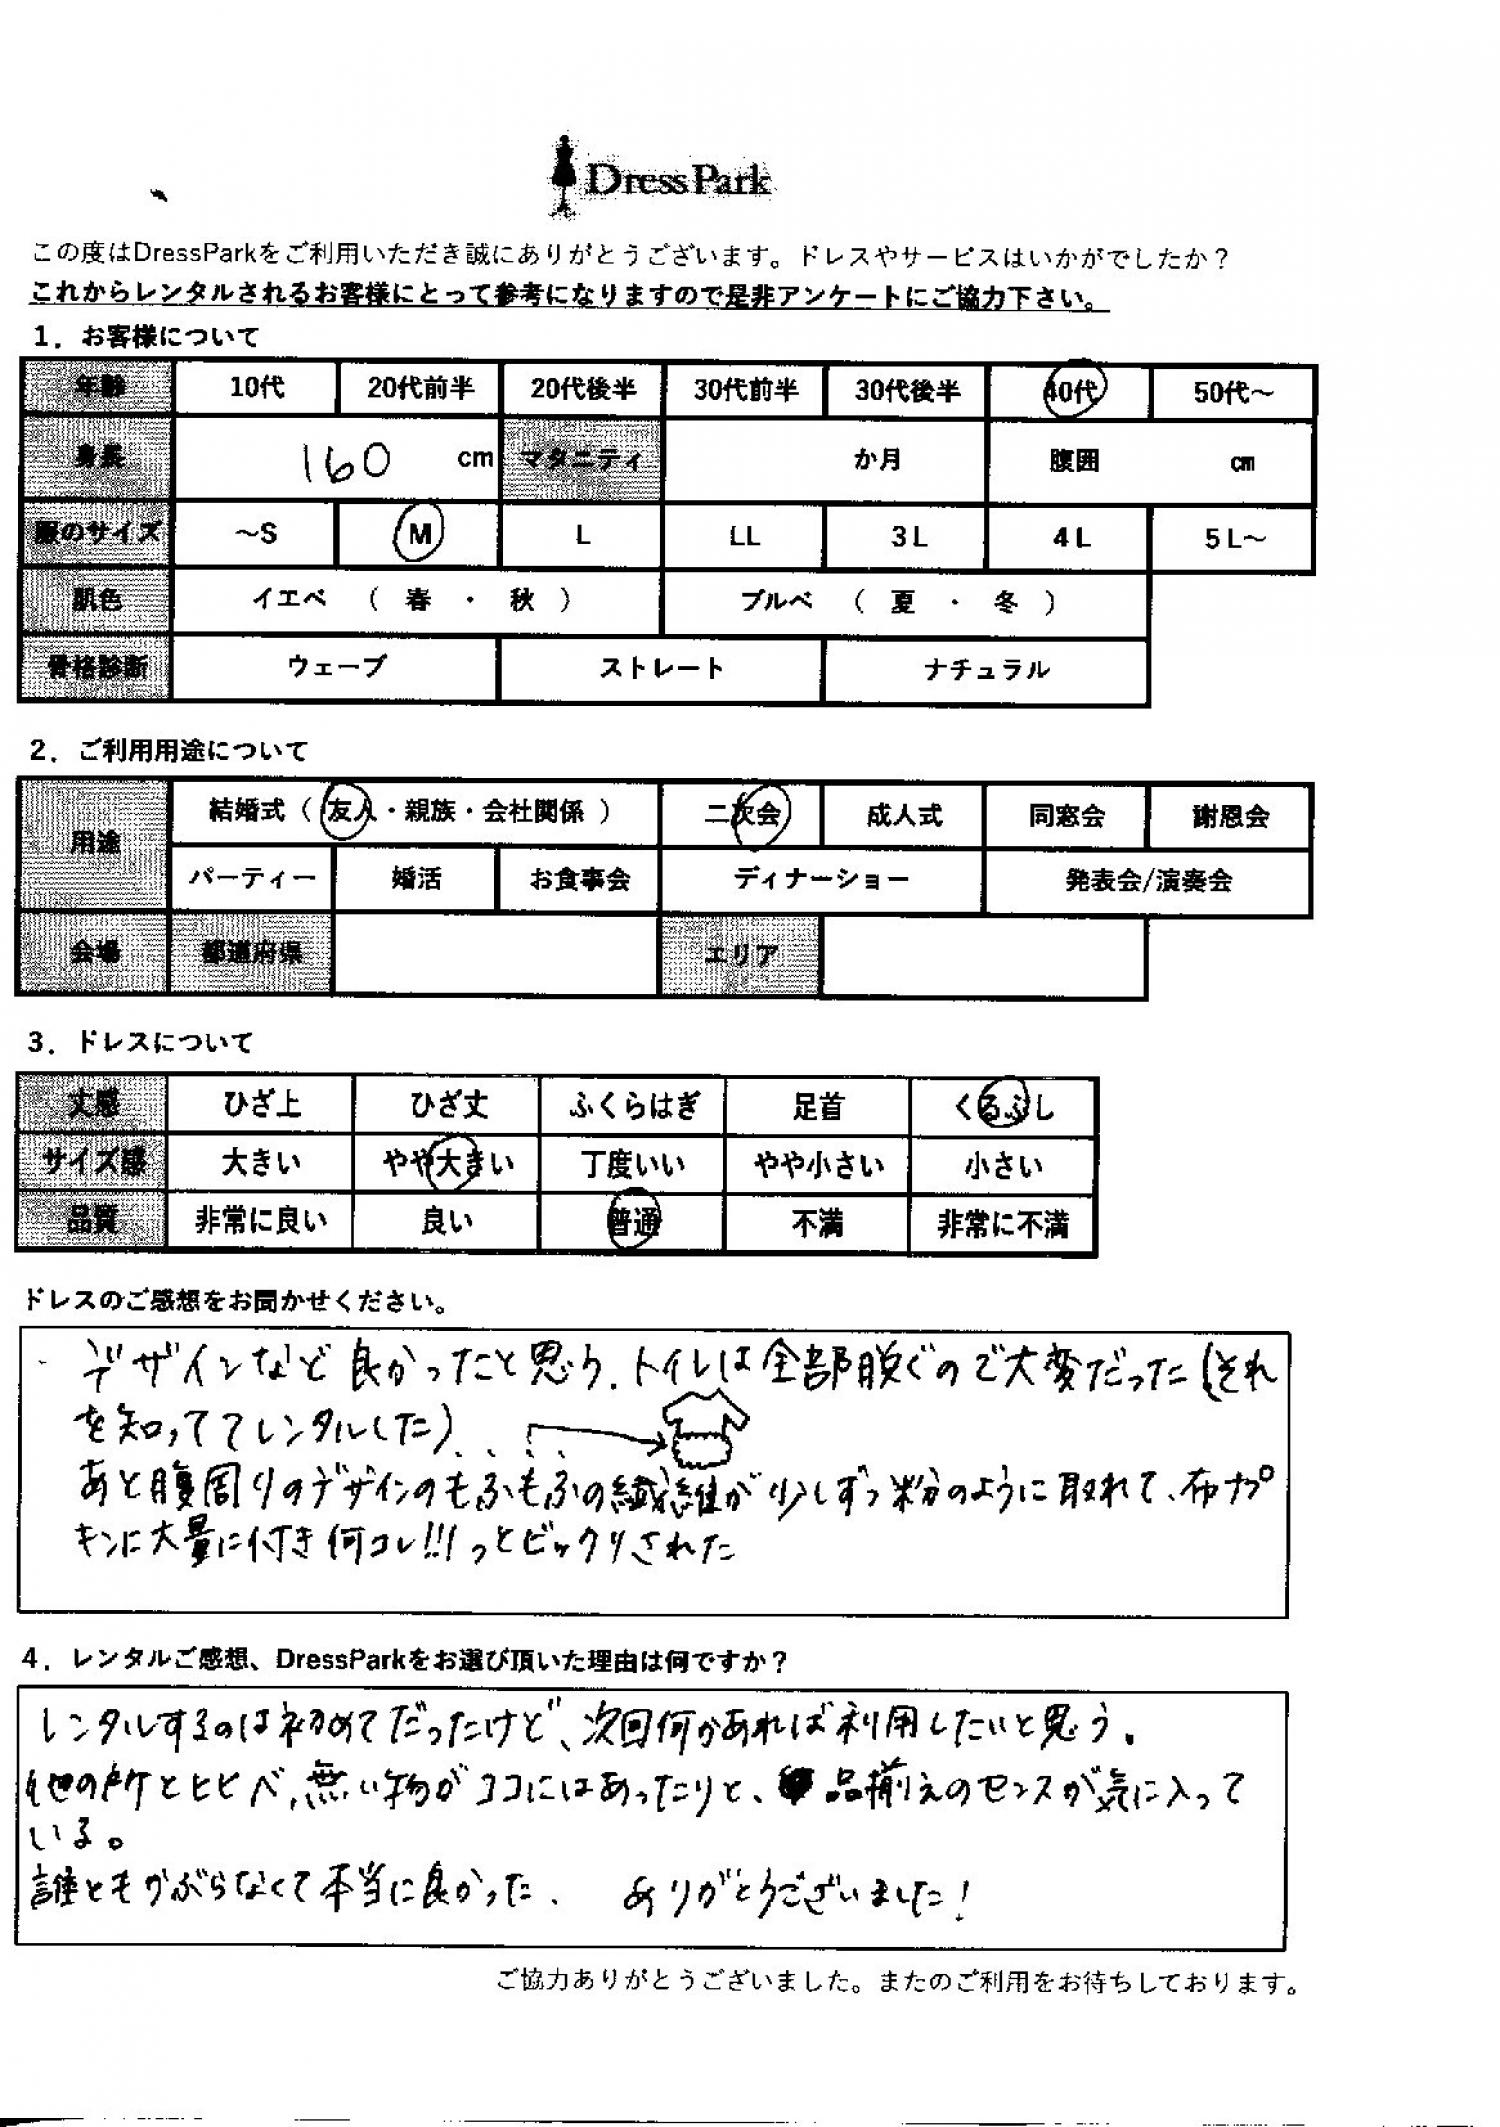 DressPark
この度はDressParkをご利用いただき誠にありがとうございます。ドレスやサービスはいかがでしたか？
これからレンタルされるお客様にとって参考になりますので是非アンケートにご協力下さい。
1．お客様について
年齢 10代 20代前半 20代後半 30代前半 30代後半 40代 50代～
身長 160 cm マタニティ か月 腹囲 cm
服のサイズ ～S M L LL 3L 4L 5L～
肌色 イエベ （ 春 ・ 秋 ） ブルベ （ 夏 ・ 冬 ）
骨格診断 ウェーブ ストレート ナチュラル
2．ご利用用途について
用途 結婚式（ 友人・親族・会社関係 ） 二次会 成人式 同窓会 謝恩会
パーティー 婚活 お食事会 ディナーショー 発表会/演奏会
会場 都道府県 エリア
3．ドレスについて
丈感 ひざ上 ひざ丈 ふくらはぎ 足首 くるぶし
サイズ感 大きい やや大きい 丁度いい やや小さい 小さい
品質 非常に良い 良い 普通 不満 非常に不満
ドレスのご感想をお聞かせください。
デザインなど良かったと思う。トイレは全部脱ぐので大変だった（それ
を知っててレンタルした）
あと腹周りのデザインのもふもふの繊維が少しずつ粉のように取れて、布ナプ
キンに大量に付き何コレ!!!っとビックリされた
4．レンタルご感想、DressParkをお選び頂いた理由は何ですか？
レンタルするのは初めてだったけど、次回何かあれば利用したいと思う。
他の所とヒヒベ、無い物がココにはあったりと、品揃えのセンスが気に入って
いる。
誰ともかぶらなくて本当に良かった、 ありがとうございました！
ご協力ありがとうございました。またのご利用をお待ちしております。